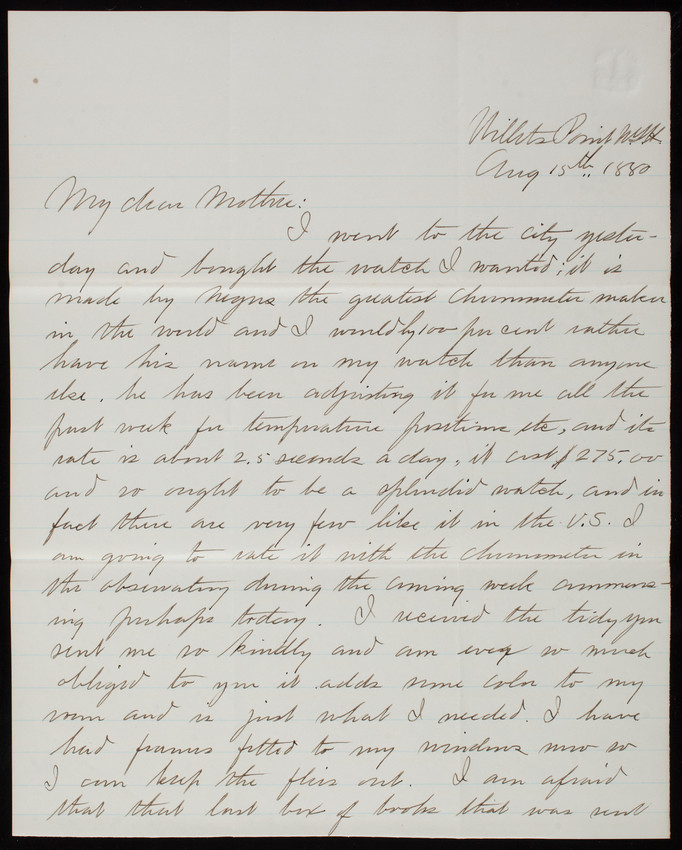 Willets Point N.Y.H.
Aug 15th, 1880
My dear Mother:
I went to the city yester-
day and bought the watch I wanted; it is
made by Negus the greatest Chronometer maker
in the world and I would by 100 per cent rather
have his name on my watch than anyone
else. he has been adjusting it for me all the
past week for temperature positions etc, and its
rate is about 2.5 seconds a day; it cost $275.00
and so ought to be a splendid watch, and in
fact there are very few like it in the U.S. I
am going to rate it with the chronometer in
the observatory during the coming week commenc-
ing perhaps today. I received the tidy you
sent me so kindly and am ever so much
obliged to you it adds some color to my
room and is just what I needed. I have
had frames fitted to my windows now so
I can keep the flies out. I am afraid
that that last box of books that was sent